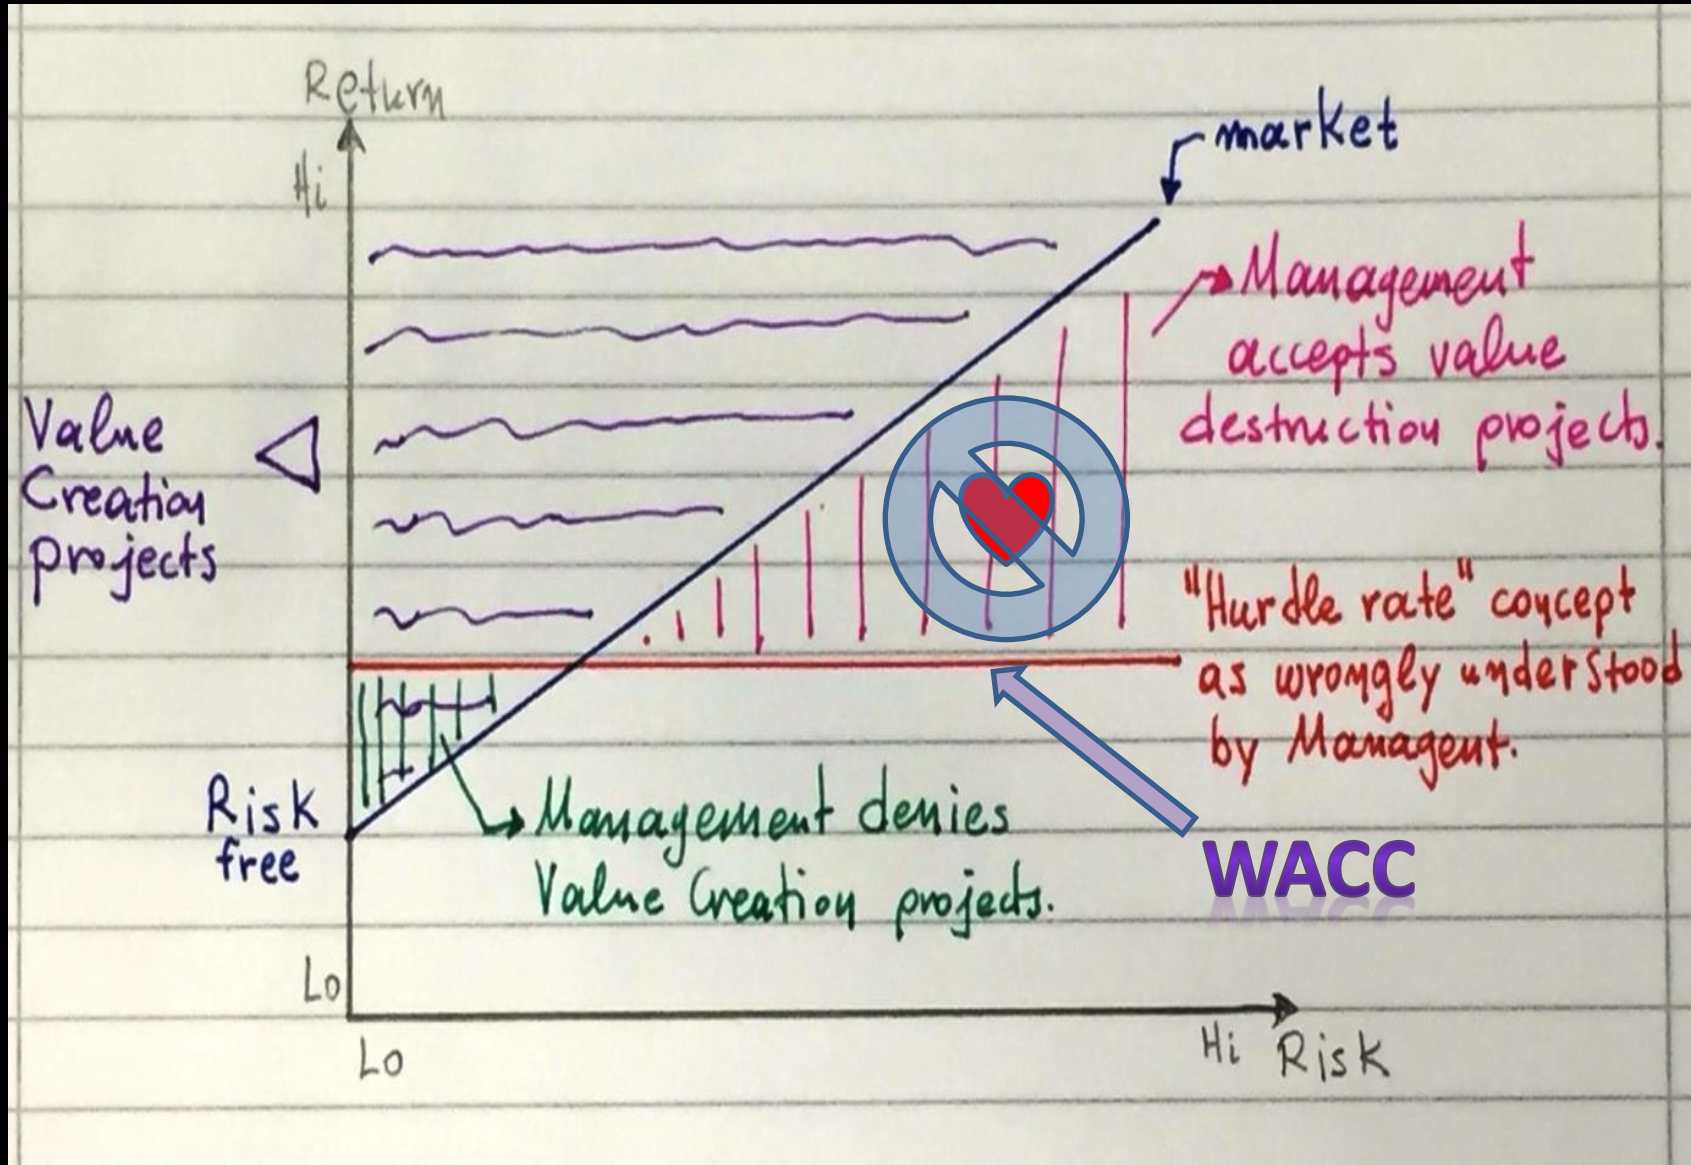 Return
Hi
market
Management
accepts value
destruction projects.
Value
Creation
projects
"Hurdle rate" concept
as wrongly understood
by Managent.
Risk
free
Management denies
Value Creation projects.
WACC
Lo
Lo
Hi Risk